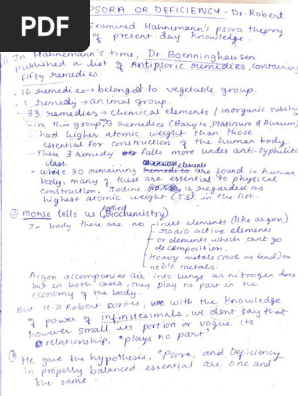 PDF
PSORA OR DEFICIENCY - Dr. Robert
Examined Hahnemann's psora theory
of present-day knowledge.
In Hahnemann's time, Dr. Boenninghausen
published a list of Antipsoric remedies, containing
fifty remedies.
16 remedies → belonged to vegetable group.
1 remedy → animal group.
33 remedies → chemical elements / inorganic substa
in this group, 3 remedies (Baryta, Platinum & Aurum)
had higher atomic weight than those
essential for construction of the human body.
These 3 remedy falls more under anti-syphilitic
class.
elements
whole 30 remaining are found in human
body, many of these are essential to physical
construction. Iodine is regarded as
highest atomic weight (53) in the list.
② Morse tells us (Applied Biochemistry)
In body there are no inert elements (like argon)
radio active elements
or elements which can't go
decomposition.
Heavy metals (such as lead) or
noble metals.
Argon accompanies air into lungs as nitrogen does
but in both cases, they play no part in the
economy of the body.
But H.A Robert writes, we with the knowledge
of power of infinitesimals, we dont say that
however small its portion or vague its
relationship, "plays no part"
He gave the hypothesis, "Psora, and Deficiency
in properly balanced essential are one and
the same.